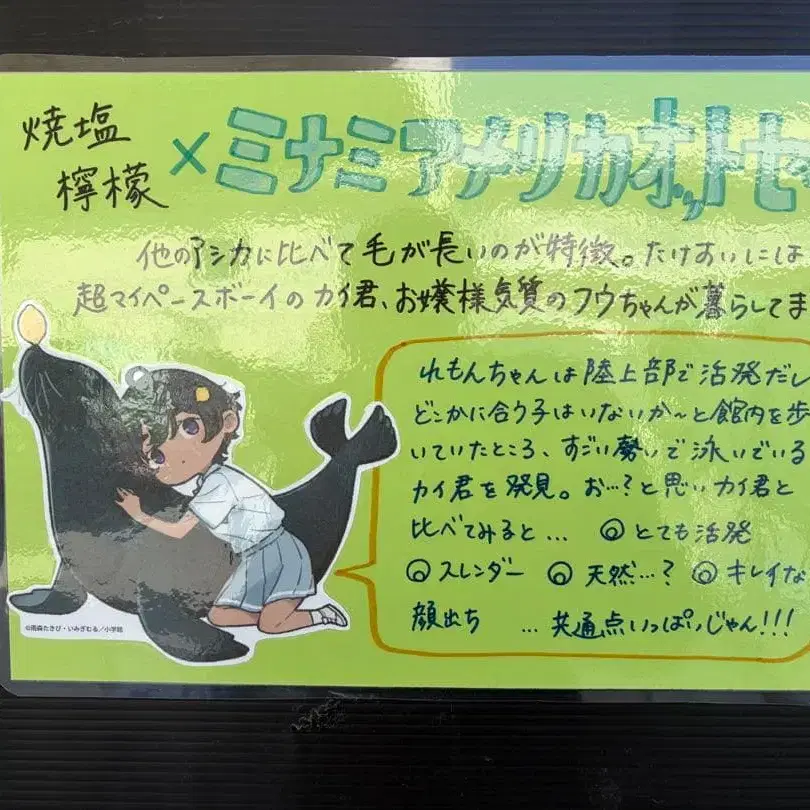 焼塩
檸檬
×ミナミアメリカオットセ
他のアシカに比べて毛が長いのが特徴。たけすいには
超マイペースボーイのカイ君、お嬢様気質のフウちゃんが暮らしてま
れもんちゃんは陸上部で活発だし
どこかに合う子はいないか〜と館内を歩
いていたところ、すごい勢いで泳いでいる
カイ君を発見。お…?と思いカイ君と
比べてみると… ◎とても活発
◎スレンダー ◎天然…? ◎キレイな
顔出ち …共通点いっぱいじゃん!!!
©雨森たきび・いみぎむる/小学館